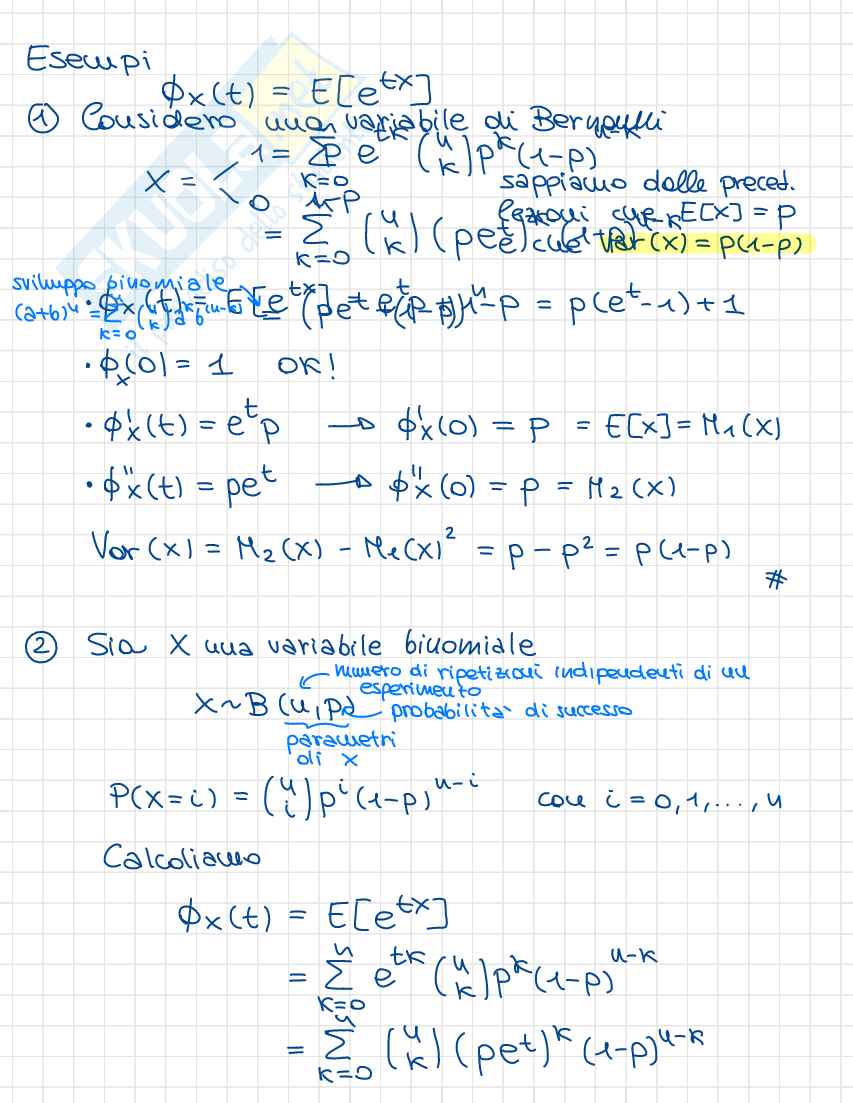 Esempi
ϕx(t) = E[e^{tx}]
① Considero una variabile di Bernoulli
= Σ_{k=0}^{n} e^{tk} (n k) p^k (1-p)^{n-k}
X = < 1 p
0 1-p
sappiamo dalle preced.
lezioni che E[X] = p
e che Var(X) = p(1-p)
= Σ_{k=0}^{n} (n k) (pe^t)^k (1-p)^{n-k}
sviluppo binomiale
(a+b)^n = Σ_{k=0}^{n} (n k) a^k b^{n-k}
= (pe^t + (1-p))^n
· ϕx(t) = E[e^{tx}] = e^t p + 1-p = p(e^t-1)+1
· ϕx(0) = 1 OK!
· ϕ'x(t) = e^t p → ϕ'x(0) = p = E[x] = M₁(x)
· ϕ''x(t) = pe^t → ϕ''x(0) = p = M₂(x)
Var(x) = M₂(x) - M₁(x)² = p - p² = p(1-p)
#
② Sia X una variabile binomiale
numero di ripetizioni indipendenti di un
esperimento
X ~ B(n, p)
probabilità di successo
parametri
di X
P(X=i) = (n i) p^i (1-p)^{n-i} con i = 0,1,...,n
Calcoliamo
ϕx(t) = E[e^{tx}]
= Σ_{k=0}^{n} e^{tk} (n k) p^k (1-p)^{n-k}
= Σ_{k=0}^{n} (n k) (pe^t)^k (1-p)^{n-k}